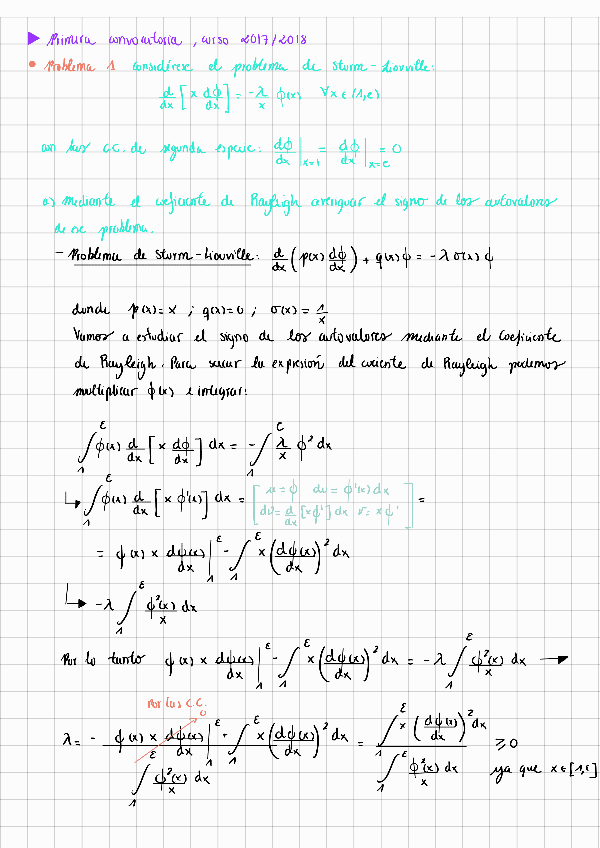 ▶ Primera convocatoria, curso 2017/2018
• Problema 1 considérese el problema de Sturm-Liouville:
d/dx [x dϕ/dx] = -λ/x ϕ(x) ∀x ∈ (1,e)
con las C.C. de segunda especie: dϕ/dx |x=1 = dϕ/dx |x=e = 0
a) mediante el coeficiente de Rayleigh averiguar el signo de los autovalores
de ese problema.
- Problema de Sturm-Liouville: d/dx (p(x) dϕ/dx) + q(x)ϕ = -λσ(x)ϕ
donde p(x)=x ; q(x)=0 ; σ(x)=1/x
Vamos a estudiar el signo de los autovalores mediante el coeficiente
de Rayleigh. Para sacar la expresión del cociente de Rayleigh podemos
multiplicar ϕ(x) e integrar:
∫₁ᵉ ϕ(x) d/dx [x dϕ/dx] dx = -∫₁ᵉ λ/x ϕ² dx
↳ ∫₁ᵉ ϕ(x) d/dx [x ϕ'(x)] dx = [u=ϕ du=ϕ'(x)dx
dv=d/dx [xϕ'] dx v=xϕ'] =
= ϕ(x) x dϕ(x)/dx |₁ᵉ - ∫₁ᵉ x (dϕ(x)/dx)² dx
↳ -λ ∫₁ᵉ ϕ²(x)/x dx
Por lo tanto ϕ(x) x dϕ(x)/dx |₁ᵉ - ∫₁ᵉ x (dϕ(x)/dx)² dx = -λ ∫₁ᵉ ϕ²(x)/x dx →
Por las C.C.
0
λ = - ϕ(x) x dϕ(x)/dx |₁ᵉ + ∫₁ᵉ x (dϕ(x)/dx)² dx / ∫₁ᵉ ϕ²(x)/x dx = ∫₁ᵉ x (dϕ(x)/dx)² dx / ∫₁ᵉ ϕ²(x)/x dx ≥ 0
ya que x ∈ [1,e]